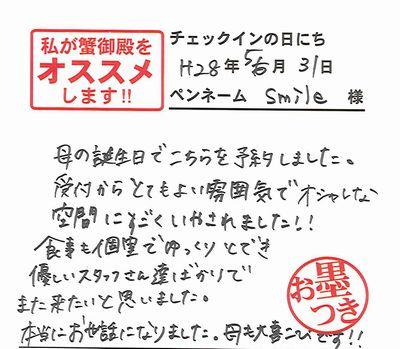 私が蟹御殿を
オススメ
します!!
チェックインの日にち
H28年5月31日
ペンネーム smile 様
母の誕生日でこちらを予約しました。
受付からとてもよい雰囲気でオシャレな
空間にすごくいやされました!!
食事も個室でゆっくりとでき
優しいスタッフさん達ばかりで
また来たいと思いました。
本当にお世話になりました。母も大喜こびです!!
お墨つき